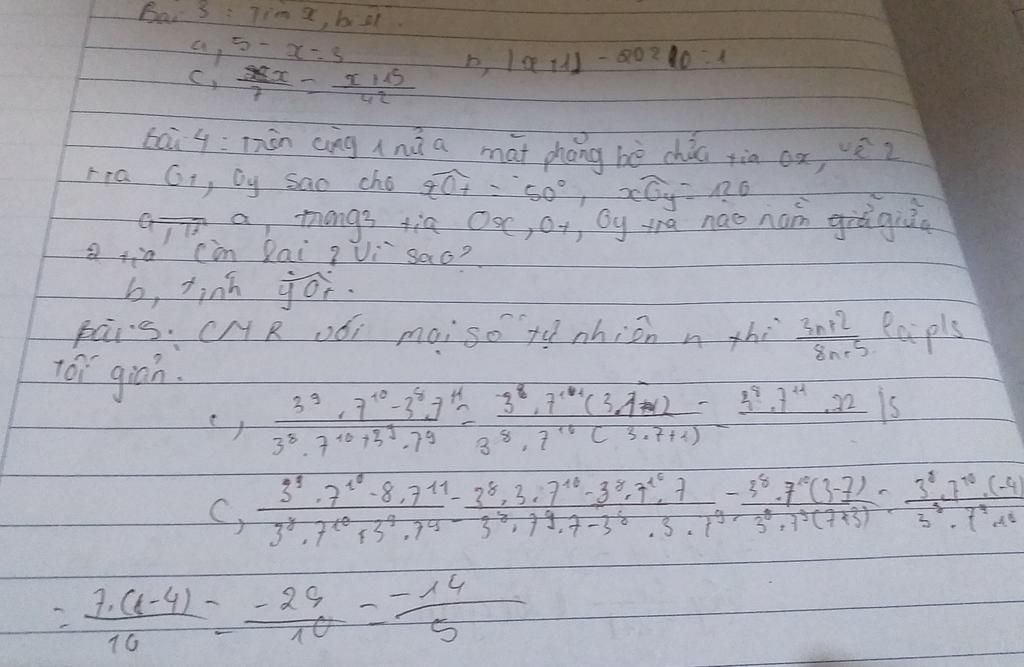 Bài 3 : Tìm x, biết.
a, 5 - x = 3 b, |x + 1| - 2020 = 1
c, x/7 = x+15/42
Bài 4 : Trên cùng 1 nửa mặt phẳng bờ chứa tia Ox, vẽ 2
tia Ot, Oy sao cho xOt = 50°, xOy = 120
a, trong 3 tia Ox, Ot, Oy tia nào nằm giữa
2 tia còn lại ? Vì sao?
b, tính yOt.
Bài 5: CMR với mọi số tự nhiên n thì 3n+2/8n+5 là pls
tối giản.
3⁹.7¹⁰-3⁸.7¹¹/3⁸.7¹⁰+3⁹.7⁹
C, 3⁹.7¹⁰-8.7¹¹/3⁸.7¹⁰+3⁹.7⁹ = 3⁸.3.7¹⁰-3⁸.7¹⁰.7/3⁸.7⁹.7-3⁸.3.7⁹ = 3⁸.7¹⁰(3-7)/3⁸.7⁹(7+3) = 3⁸.7¹⁰.(-4)/3⁸.7⁹.10
= 7.(-4)/10 = -29/10 = -14/5